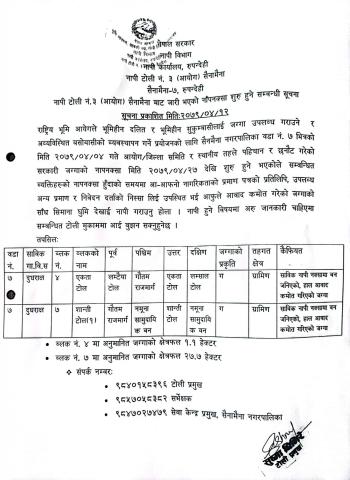 नेपाल सरकार
नापी विभाग
नापी कार्यालय, रुपन्देही
नापी टोली नं.३ (आयोग) सैनामैना
सैनामैना-७, रुपन्देही
नापी टोली नं.३ (आयोग) सैनामैना बाट जारी भएको नापनक्सा शुरु हुने सम्बन्धी सूचना
सूचना प्रकाशित मिति:२०७९/०४/१२
राष्ट्रिय भूमि आयोगले भूमिहीन दलित र भूमिहीन सुकुम्बासीलाई जग्गा उपलब्ध गराउने र
अव्यवस्थित बसोवासीको व्यवस्थापन गर्ने प्रयोजनको लागि सैनामैना नगरपालिका वडा नं. ७ भित्रको
मिति २०७९/०४/०४ गते आयोग/जिल्ला समिति र स्थानीय तहले पहिचान र छनौट गरेको
सरकारी जग्गाको नापनक्सा मिति २०७९/०४/२७ देखि शुरु हुने भएकोले सम्बन्धित
व्यक्तिहरुको नापनक्सा हुँदाको समयमा आ-आफ्नो नागरिकताको प्रमाण पत्रको प्रतिलिपि, उपलब्ध
अन्य प्रमाण र निवेदन दर्ताको निस्सा लिई उपस्थित भई आफुले आवाद कमोत गरेको जग्गाको
साँध सिमाना घुमि देखाई नापी गराउनु होला । नापी हुने बिषयमा अरु जानकारी चाहिएमा
सम्बन्धित टोली मुकाममा आई बुझ्न सक्नुहुनेछ ।
तपसिल:
वडा नं. साविक गा.वि.स ब्लक नं. ब्लकको नाम पूर्व पश्चिम उत्तर दक्षिण जग्गाको प्रकृति तहगत क्षेत्र कैफियत
७ दुधराक्ष ४ एकता टोल लम्टैमा टोल गौतम राजमार्ग एकता टोल लम्साल टोल ग ग्रामिण साविक नापी नक्सामा बन जनिएको, हाल आवाद कमोत गरिएको जग्गा
७ दुधराक्ष ७ शान्ती टोल(१) गौतम राजमार्ग नमूना सामुदायिक बन शान्ती टोल नमूना सामुदायिक बन ग ग्रामिण साविक नापी नक्सामा बन जनिएको, हाल आवाद कमोत गरिएको जग्गा
• ब्लक नं. ४ मा अनुमानित जग्गाको क्षेत्रफल १.१ हेक्टर
• ब्लक नं. ७ मा अनुमानित जग्गाको क्षेत्रफल २७.७ हेक्टर
❖ संपर्क नम्बर:
• ९८४०१५८३९६ टोली प्रमुख
• ९८५७०५८३८२ सर्भेक्षक
• ९८४७०२७४७९ सेवा केन्द्र प्रमुख, सैनामैना नगरपालिका
टोली प्रमुख